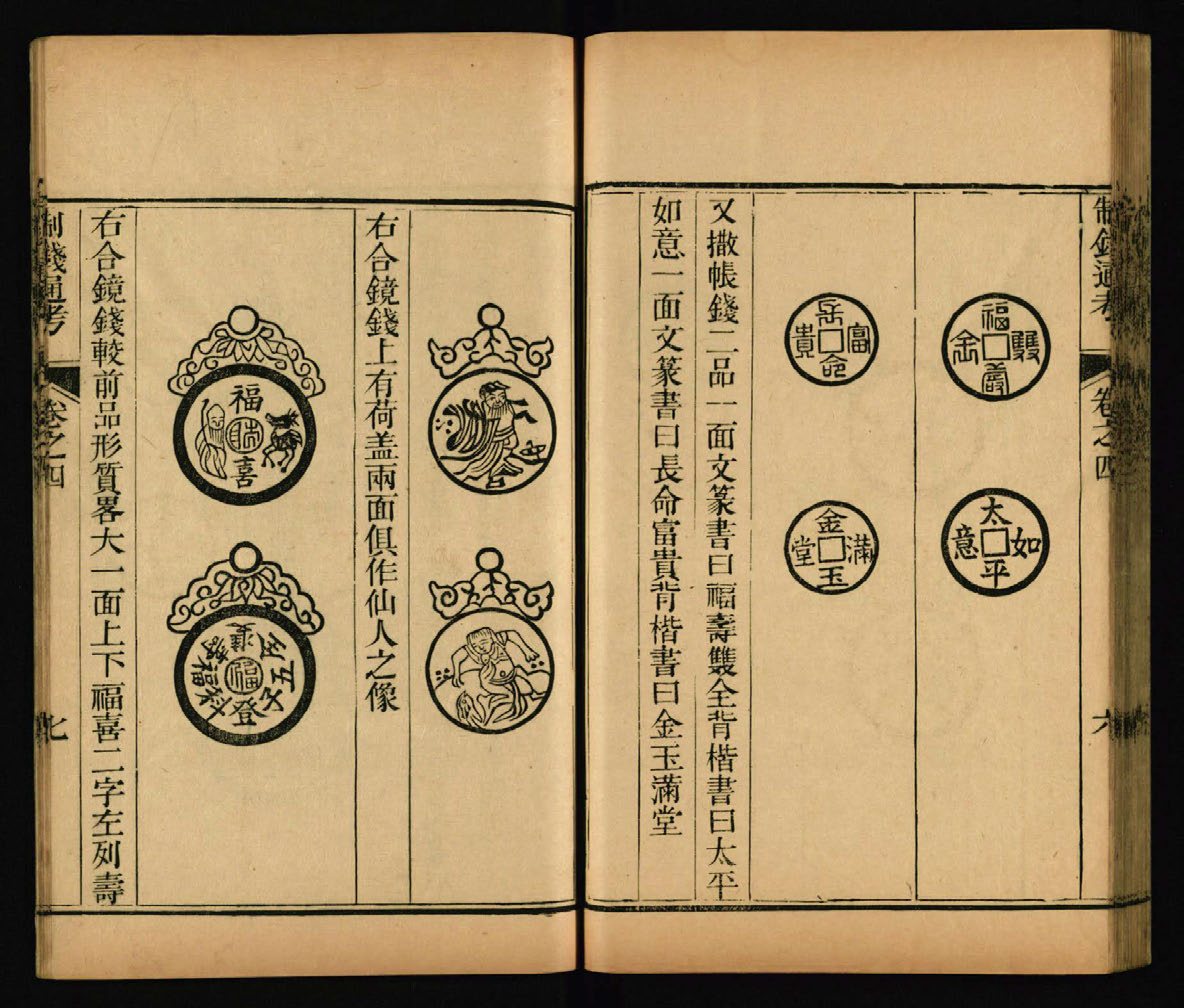 制錢通考
卷之四
六
福壽雙全
太平如意
長命富貴
金玉滿堂
又撒帳錢二品一面文篆書曰福壽雙全背楷書曰太平
如意一面文篆書曰長命富貴背楷書曰金玉滿堂
合
右合鏡錢上有荷盖兩面俱作仙人之像
福喜
五子登科
福
右合鏡錢較前品形質畧大一面上下福喜二字左列壽
制錢通考
卷之四
七